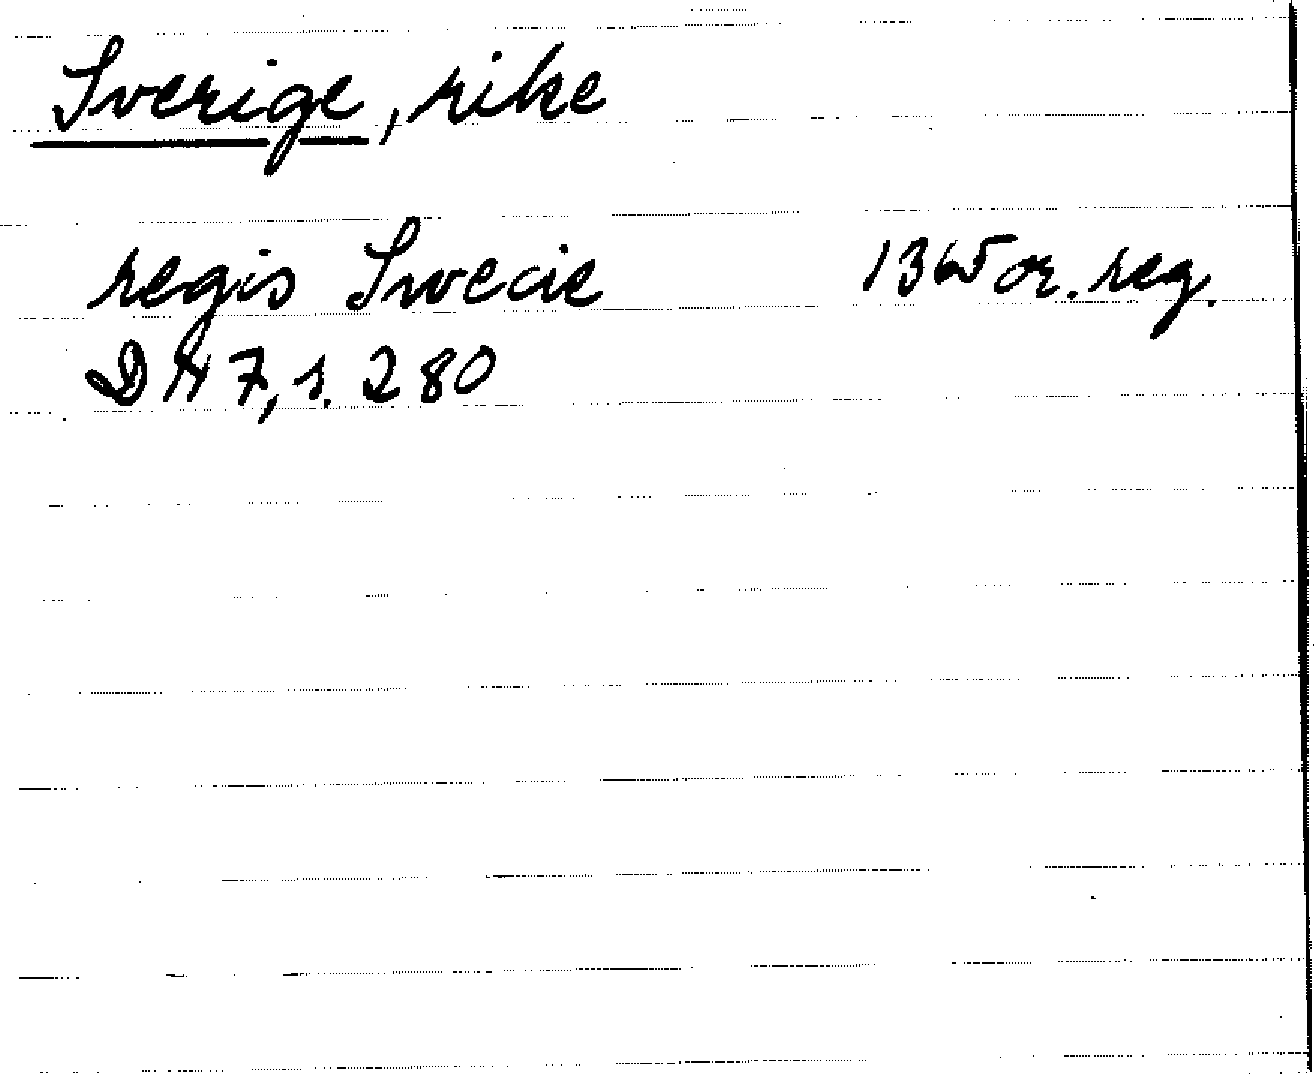 Sverige, rike
regis Swecie 1365 or. reg.
DN 7, s. 280